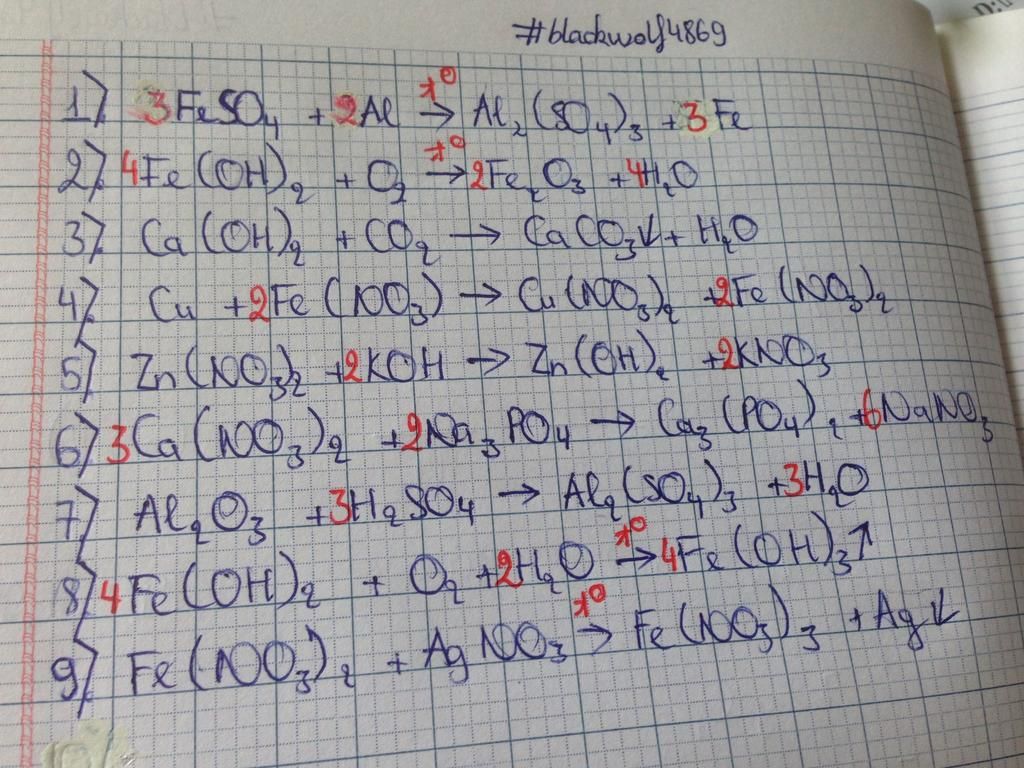 #blackwolf4869
1) 3FeSO₄ + 2Al →t⁰ Al₂(SO₄)₃ + 3Fe
2) 4Fe(OH)₂ + O₂ →t⁰ 2Fe₂O₃ + 4H₂O
3) Ca(OH)₂ + CO₂ → CaCO₃↓ + H₂O
4) Cu + 2Fe(NO₃) → Cu(NO₃)₂ + 2Fe(NO₃)₂
5) Zn(NO₃)₂ + 2KOH → Zn(OH)₂ + 2KNO₃
6) 3Ca(NO₃)₂ + 2Na₃PO₄ → Ca₃(PO₄)₂ + 6NaNO₃
7) Al₂O₃ + 3H₂SO₄ → Al₂(SO₄)₃ + 3H₂O
8) 4Fe(OH)₂ + O₂ + 2H₂O →t⁰ 4Fe(OH)₃↑
9) Fe(NO₃)₂ + AgNO₃ →t⁰ Fe(NO₃)₃ + Ag↓